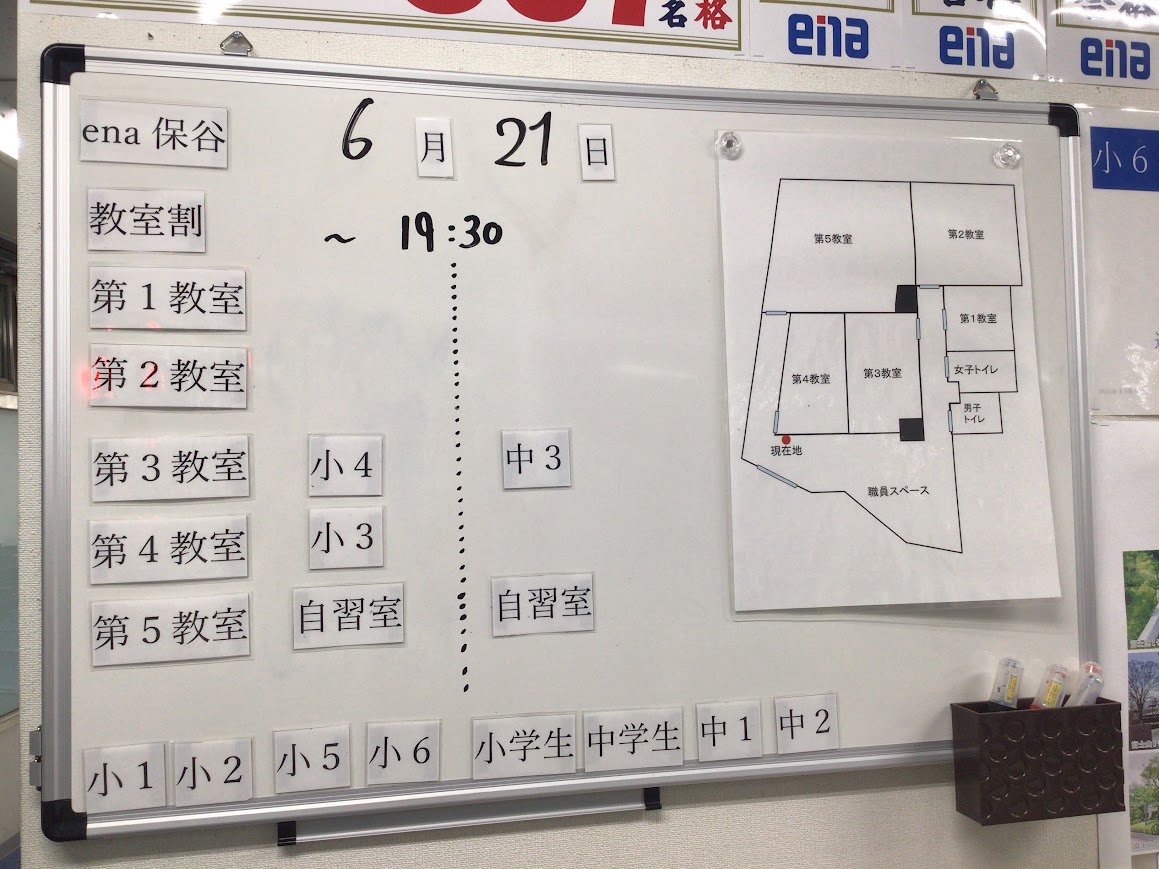 名格
ena
ena
ena
ena 保谷
6 月 21 日
教室割
~ 19:30
第1教室
第2教室
第3教室 小4 中3
第4教室 小3
第5教室 自習室 自習室
小1 小2 小5 小6 小学生 中学生 中1 中2
第5教室
第2教室
第1教室
女子トイレ
男子
トイレ
第4教室
第3教室
現在地
職員スペース
小6